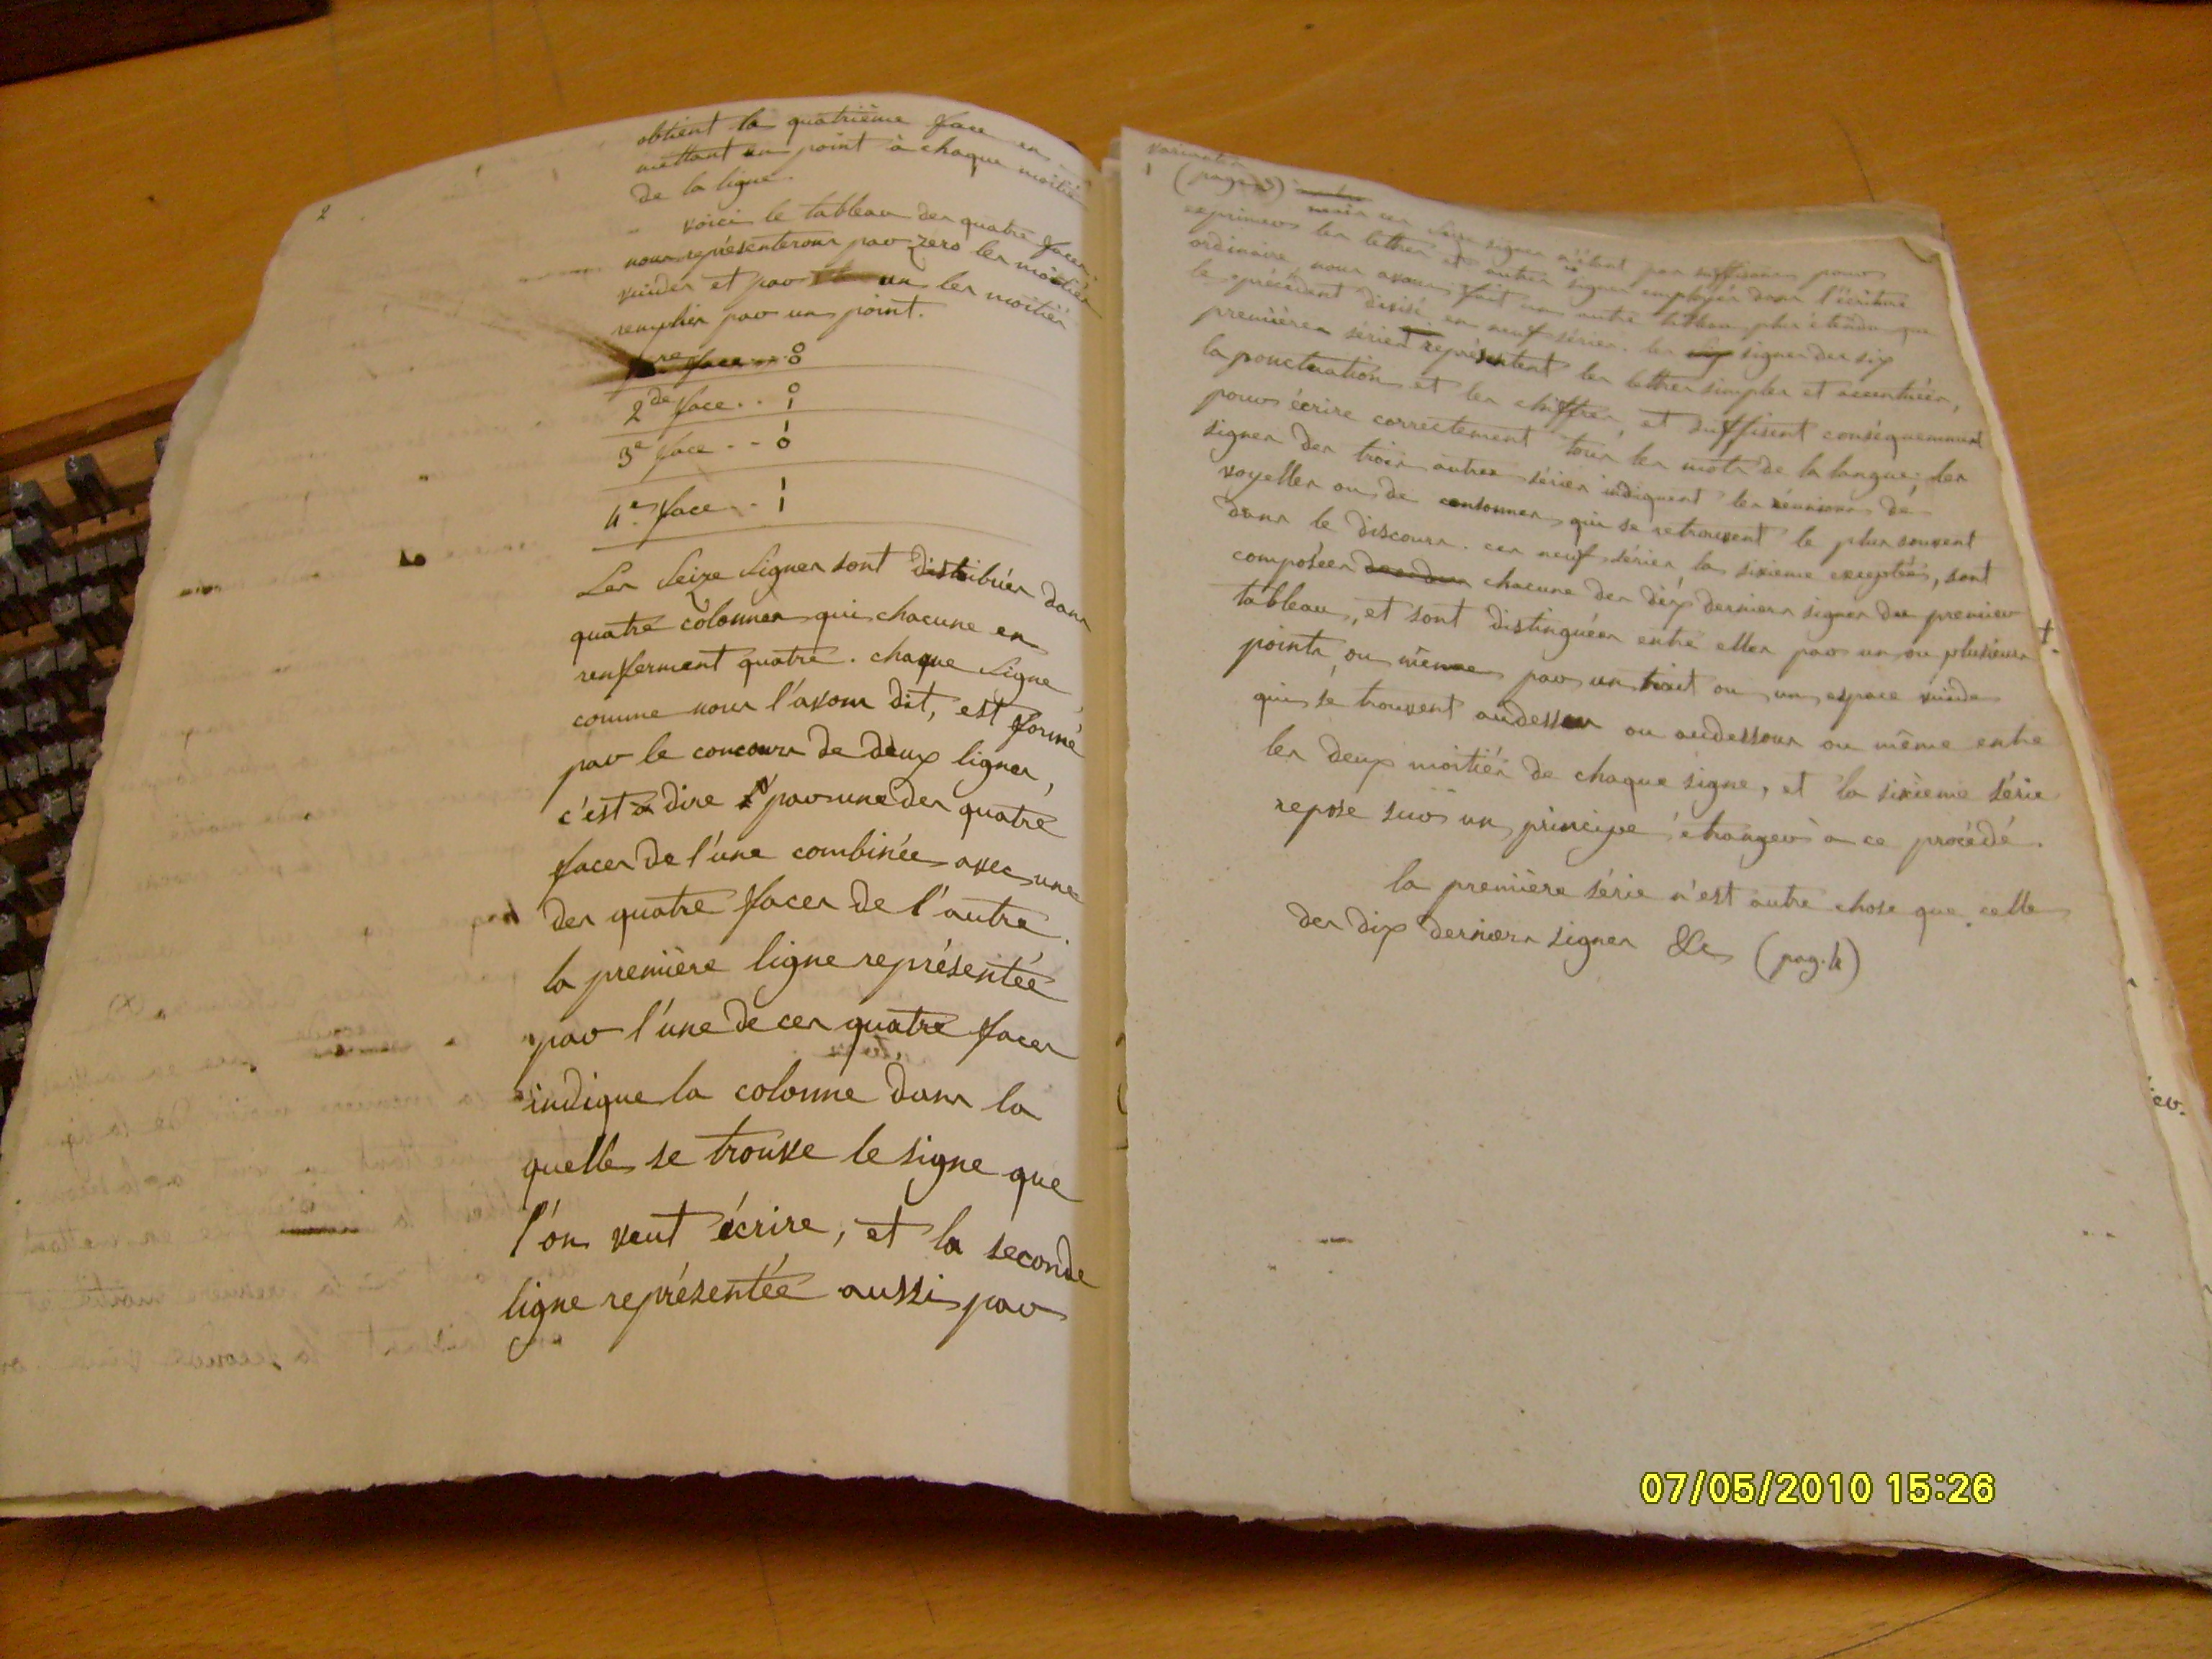 2
obtient la quatrième face en
mettant un point à chaque moitié
de la ligne.
voici le tableau des quatre faces.
nous représenterons par zéro les moitiés
vuides et par un les moitiés
remplies par un point.
1re face .... 0
0
2de face .. 0
1
3e face .. 1
0
4e face .. 1
1
Les seize signes sont distribués dans
quatre colonnes qui chacune en
renferment quatre. chaque signe
comme nous l'avons dit, est formé
par le concours de deux lignes,
c'est a dire par une des quatre
faces de l'une combinée avec une
des quatre faces de l'autre.
la première ligne représentée
par l'une de ces quatre faces
indique la colonne dans la
quelle se trouve le signe que
l'on veut écrire, et la seconde
ligne représentée aussi par
variante
mais ces seize signes n'étant pas suffisans pour
exprimer les lettres et autres signes employés dans l'écriture
ordinaire nous avons fait un autre tableau plus étendu que
le précédent divisé en neuf séries. les signes des six
premières séries représentent les lettres simples et accentuées,
la ponctuation et les chiffres, et suffisent conséquemment
pour écrire correctement tous les mots de la langue: les
signes des trois autres séries indiquent les réunions de
voyelles ou de consonnes qui se retrouvent le plus souvent
dans le discours. ces neuf séries la sixieme exceptée, sont
composées chacune des dix derniers signes du premier
tableau, et sont distinguées entre elles par un ou plusieurs +
points, ou même par un trait ou un espace vuide
qui se trouvent audessus ou audessous ou même entre
les deux moitiés de chaque signe, et la sixième série
repose sur un principe étranger à ce procédé.
la première série n'est autre chose que celle
des dix derniers signes &c (pag. 4)
07/05/2010 15:26